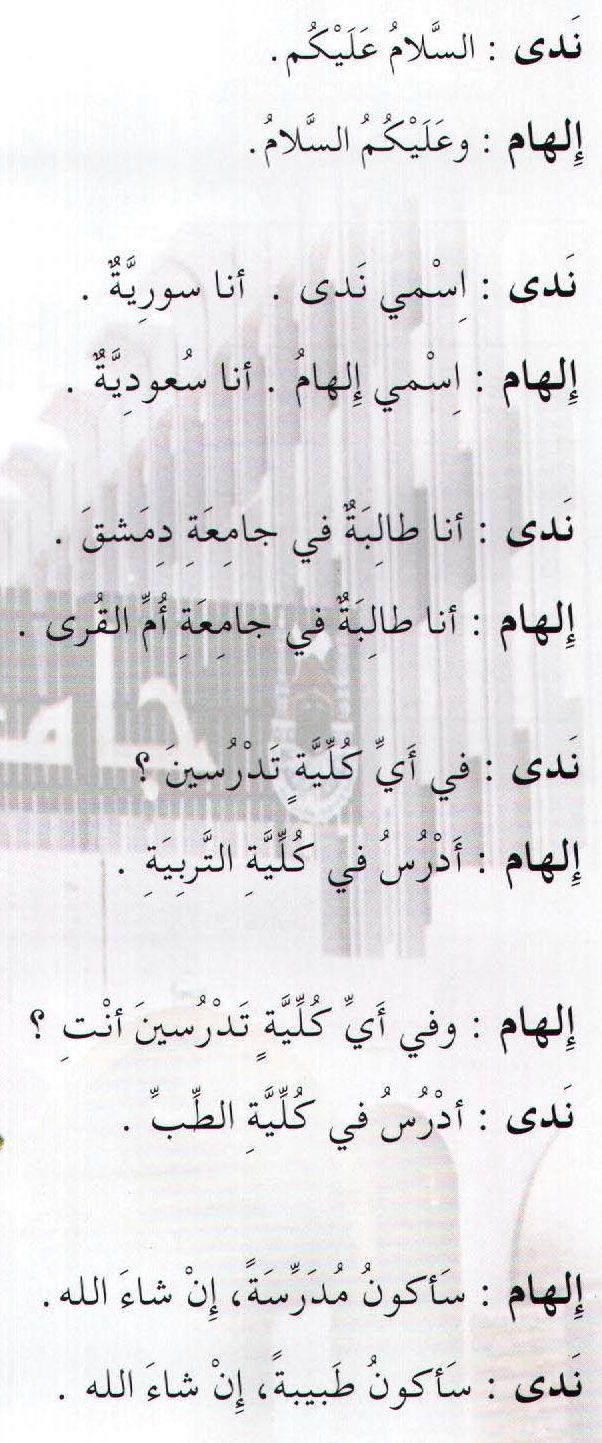 نَدى : السَّلامُ عَلَيْكُم.
إِلهام : وعَلَيْكُمُ السَّلامُ.
نَدى : اِسْمي نَدى . أنا سورِيَّةٌ .
إِلهام : اِسْمي إِلهامُ . أنا سُعودِيَّةٌ .
نَدى : أنا طالِبَةٌ في جامِعَةِ دِمَشقَ .
إِلهام : أنا طالِبَةٌ في جامِعَةِ أُمِّ القُرى .
نَدى : في أَيِّ كُلِّيَّةٍ تَدْرُسينَ ؟
إِلهام : أَدْرُسُ في كُلِّيَّةِ التَّربِيَةِ .
إِلهام : وفي أَيِّ كُلِّيَّةٍ تَدْرُسينَ أنْتِ ؟
نَدى : أدْرُسُ في كُلِّيَّةِ الطِّبِّ .
إِلهام : سَأكونُ مُدَرِّسَةً، إِنْ شاءَ الله .
نَدى : سَأكونُ طَبيبةً، إِنْ شاءَ الله .